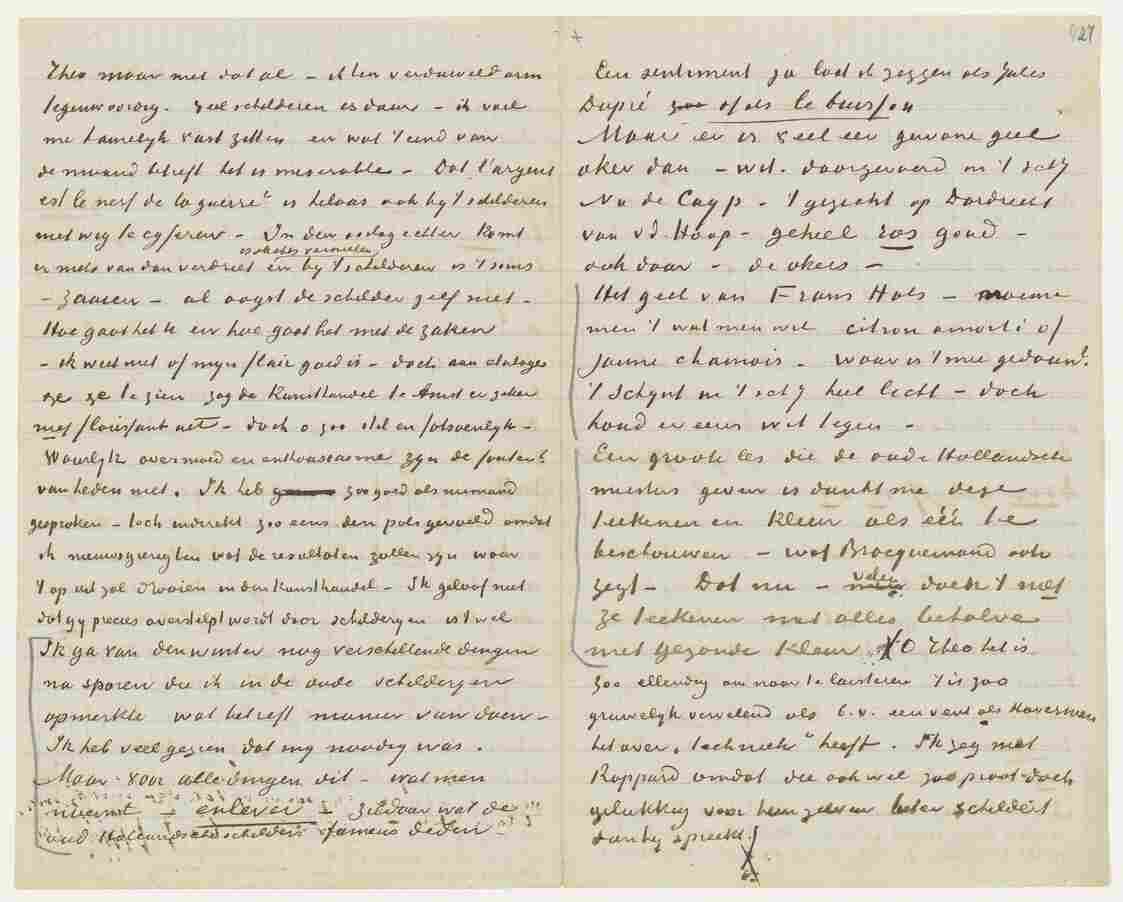 Theo maar met dat al – ik ben verduiveld arm
tegenwoordig. Veel schilderen is duur – ik voel
me tamelijk vast zitten en wat 't eind van
de maand betreft het is miserable – Dat „l'argent
est le nerf de la guerre" is helaas ook bij 't schilderen
niet weg te cyferen – In den oorlog echter komt
en slechts vernielen
er niets van dan verdriet en bij 't schilderen is 't soms
– zaaien – al oogst de schilder zelf niet –
Hoe gaat het U en hoe gaat het met de zaken
– ik weet niet of mijn flair goed is – doch aan etalages
ze te zien zag de kunsthandel te Amst er zeker
niet florissant uit – doch o zoo stil en fatsoenlyk –
Waarlyk overmoed en enthousiasme zyn de fouten
van heden niet. Ik heb zoo goed als niemand
gesproken – toch indirekt zoo eens den pols gevoeld omdat
ik nieuwsgierig ben wat de resultaten zullen zyn waar
't op uit zal draaien in den kunsthandel – Ik geloof niet
dat gy precies overstelpt wordt door schilderyen is 't wel
Ik ga van den winter nog verschillende dingen
na sporen die ik in de oude schilderyen
opmerkte wat betreft manier van doen –
Ik heb veel gezien dat my noodig was.
Maar voor alle dingen dit – wat men
noemt – enlever – ziedaar wat de
oud Hollandsche schilders fameus deden –
27
Een sentiment ja laat ik zeggen als Jules
Dupré of als le buisson
Maar er is veel een gewone geel
oker dan – wit. doorgevoerd in 't schij
Na de Cuyp – 't gezicht op Dordrecht
van v d Hoop – geheel ros goud –
ook daar – de okers –
Het geel van Frans Hals – noeme
men 't wat men wil citron amorti of
jaune chamois – waar is 't mee gedaan?
't Schynt in 't schij heel licht – doch
houd er eens wit tegen –
Een groote les die de oude Hollandsche
meesters geven is dunkt me deze
teekenen en kleur als één te
beschouwen – wat Bracquemond ook
zegt – Dat nu – velen doen 't niet
ze teekenen met alles behalve
met gezonde kleur. O Theo het is
zoo ellendig om naar te luisteren 't is zoo
gruwelyk vervelend als b.v. een vent als Haverman
het over „techniek" heeft. Ik zeg niet
Rappard omdat die ook wel zoo praat doch
gelukkig voor hem zelven beter schildert
dan hy spreekt.